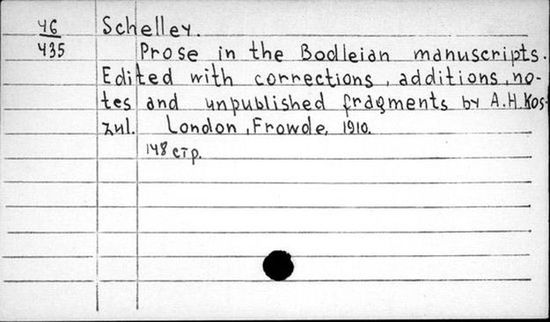 46 Schelley.
435 Prose in the Bodleian manuscripts.
Edited with corrections, additions, no-
tes and unpublished fragments by A.H. Kos-
zul. London, Frowde, 1910.
148 стр.